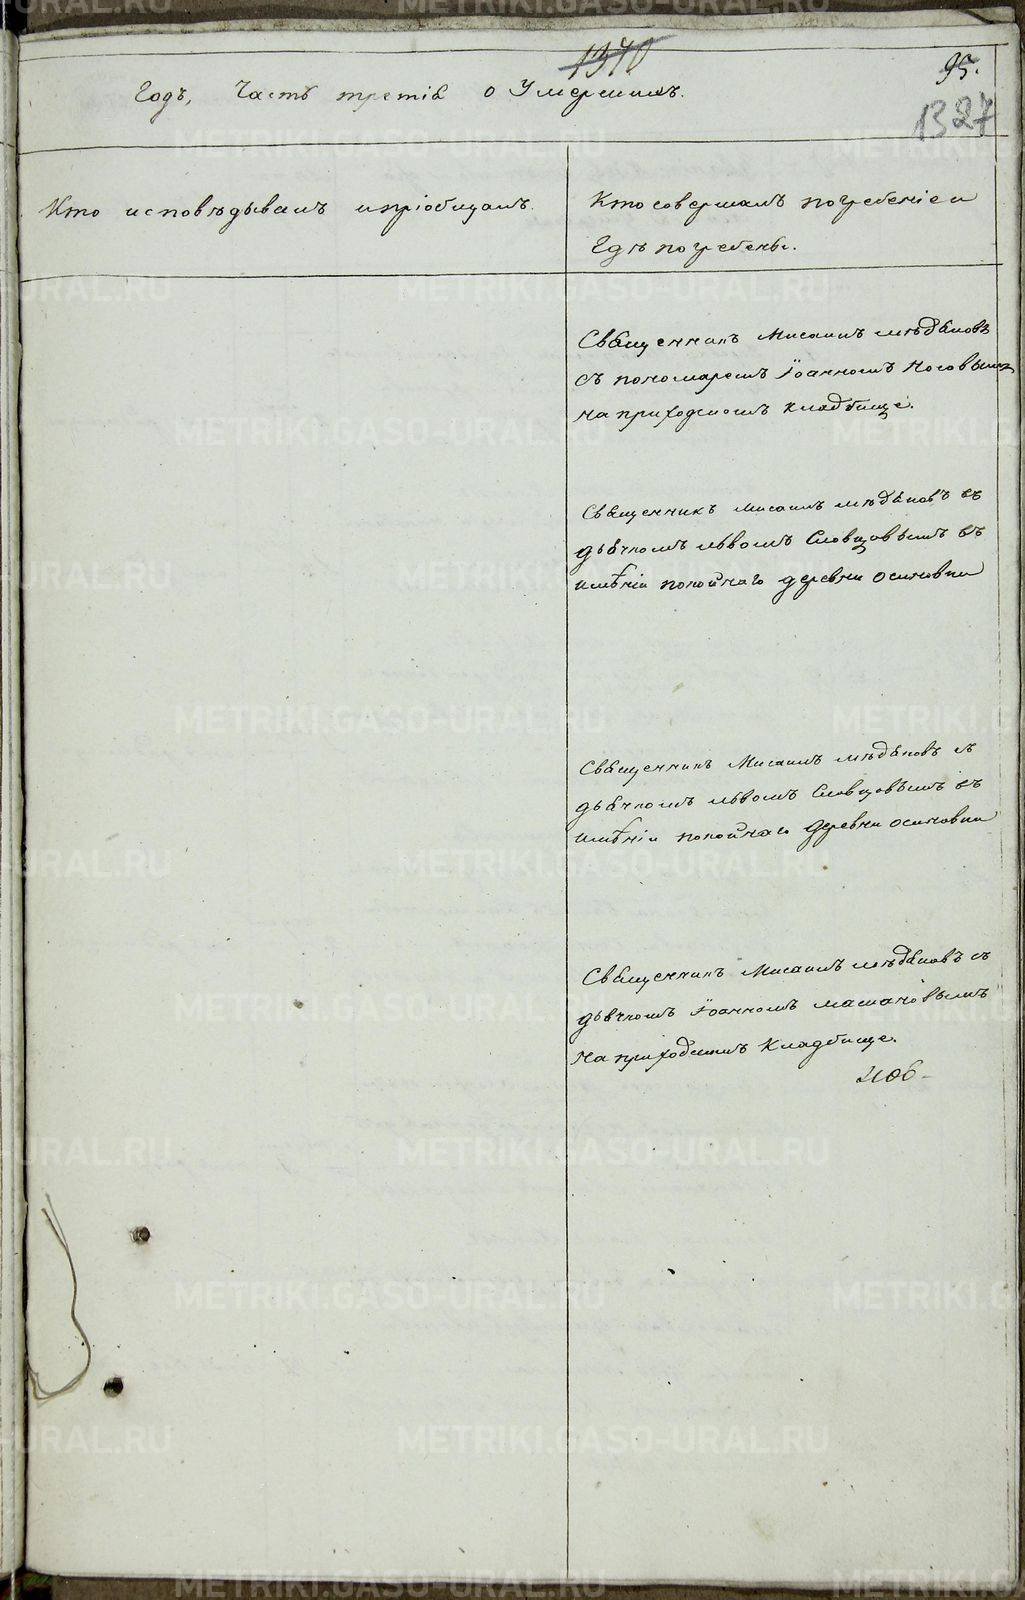 1370
95.
1327
Годъ, Часть третія о Умершихъ.
Кто исповѣдывалъ и пріобщалъ.
Кто совершалъ погребеніе и
Гдѣ погребены.
Священникъ Мисаилъ Мѣдяковъ
съ пономаремъ Іоанномъ Носовымъ
на приходскомъ кладбище.
Священникъ Мисаилъ Мѣдяковъ съ
дьячкомъ Львомъ Словцовымъ въ
имѣніи покойнаго деревни Осиновки
Священникъ Мисаилъ Мѣдяковъ съ
дьячкомъ Львомъ Словцовымъ въ
имѣніи покойнаго деревни Осиновки
Священникъ Мисаилъ Мѣдяковъ съ
дьячкомъ Іоанномъ Машановымъ
на приходскомъ Кладбище.
METRIKI.GASO-URAL.RU